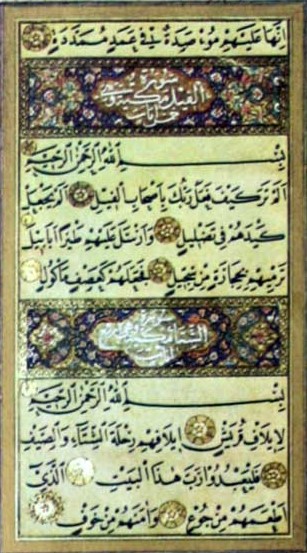 اِنَّهَا عَلَيْهِمْ مُوءْصَدَةٌ فِى عَمَدٍ مُمَدَّدَةٍ
سورة الفيل مكية وهي
خمس آيات
بِسْمِ اللّٰهِ الرَّحْمٰنِ الرَّحِيمِ
اَلَمْ تَرَ كَيْفَ فَعَلَ رَبُّكَ بِاَصْحَابِ الْفِيلِ اَلَمْ يَجْعَلْ
كَيْدَهُمْ فِى تَضْلِيلٍ وَاَرْسَلَ عَلَيْهِمْ طَيْرًا اَبَابِيلَ
تَرْمِيهِمْ بِحِجَارَةٍ مِنْ سِجِّيلٍ فَجَعَلَهُمْ كَعَصْفٍ مَاْكُولٍ
سورة
بِسْمِ اللّٰهِ الرَّحْمٰنِ الرَّحِيمِ
لِاِيلَافِ قُرَيْشٍ اِيلَافِهِمْ رِحْلَةَ الشِّتَاءِ وَالصَّيْفِ
فَلْيَعْبُدُوا رَبَّ هٰذَا الْبَيْتِ الَّذِى
اَطْعَمَهُمْ مِنْ جُوعٍ وَاٰمَنَهُمْ مِنْ خَوْفٍ